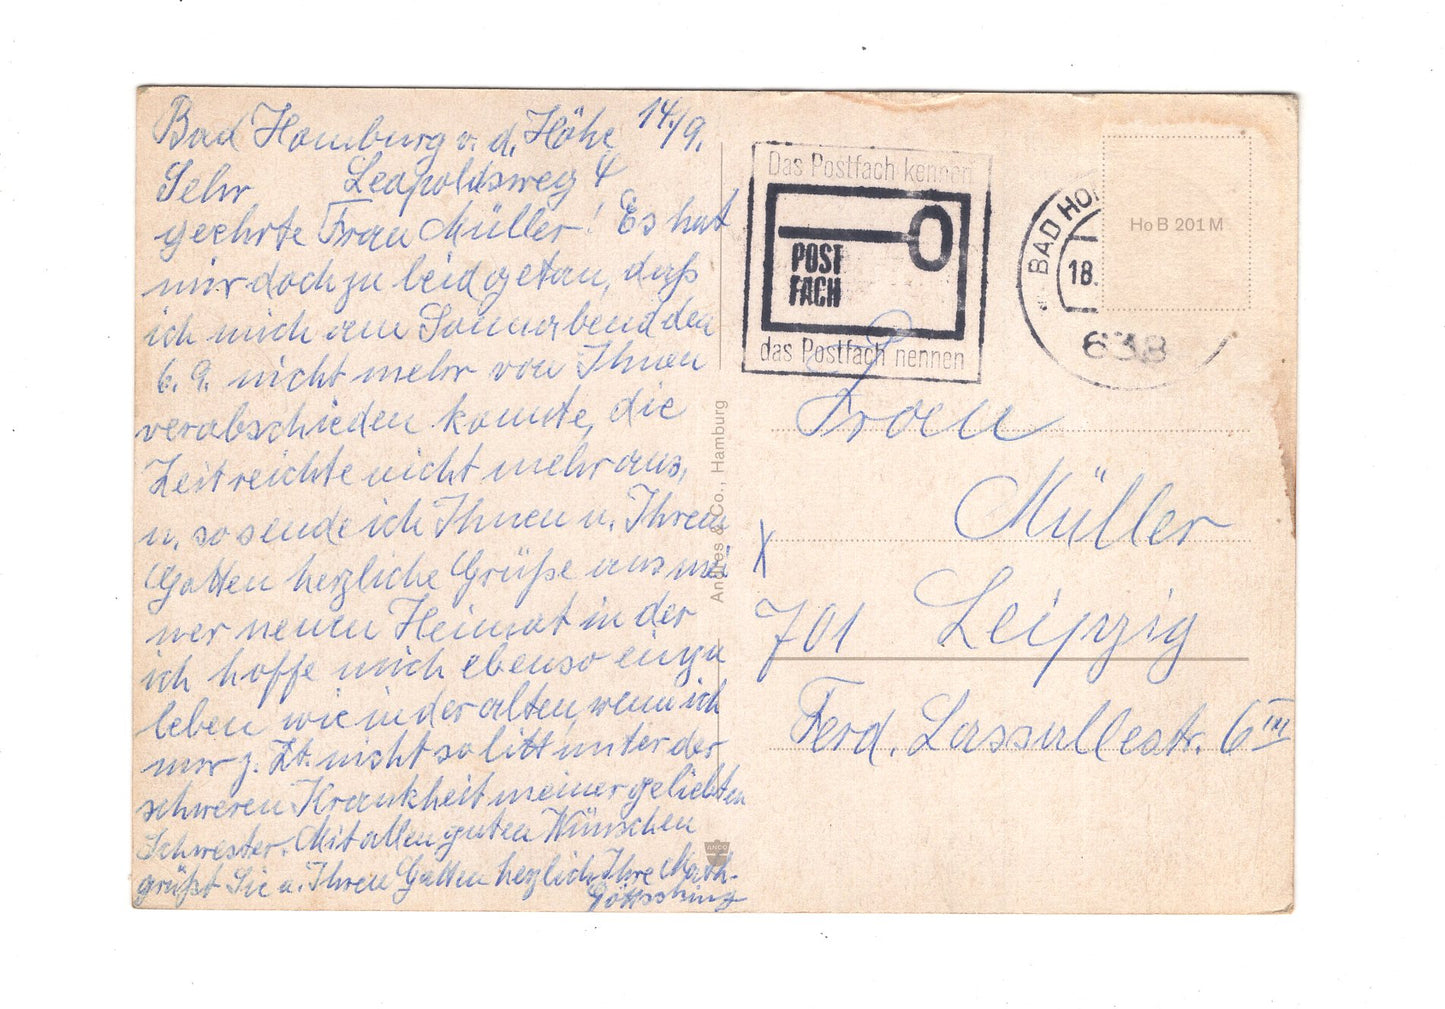 Bad Homburg v. d. Höhe 14./9.
Leopoldsweg 4
Sehr
geehrte Frau Müller! Es hat
mir doch zu leid getan, daß
ich mich am Sonnabend den
6. 9. nicht mehr von Ihnen
verabschieden konnte, die
Zeit reichte nicht mehr aus,
u. so sende ich Ihnen u. Ihrem
Gatten herzliche Grüße aus mei
ner neuen Heimat in der
ich hoffe mich ebenso einzu
leben wie in der alten, wenn ich
nur z. Zt. nicht so litt unter der
schweren Krankheit meiner geliebten
Schwester. Mit allen guten Wünschen
grüßt Sie u. Ihren Gatten herzlich Ihre
Andres & Co., Hamburg
ANCO
Das Postfach kennen
POST
FACH
das Postfach nennen
BAD HO
18.
638
Ho B 201 M
Frau
Müller
701 Leipzig
Ferd. Lassallestr. 6 III